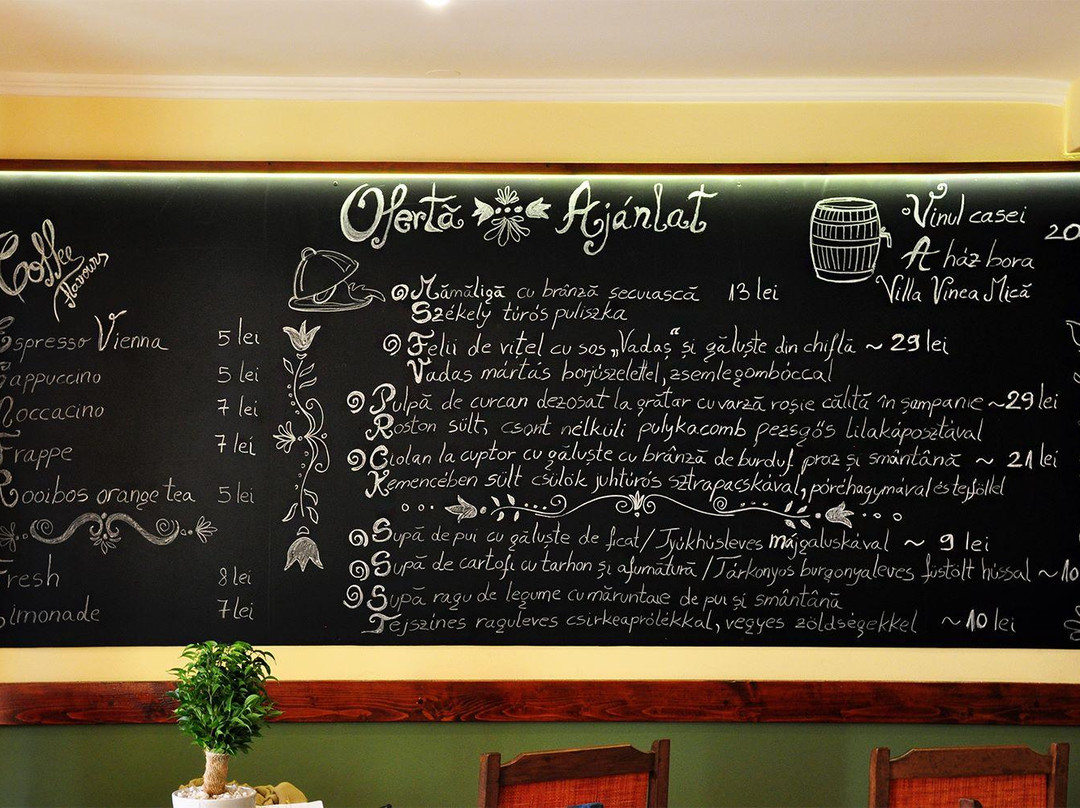 Coffee
flavours
Espresso Vienna 5 lei
Cappuccino 5 lei
Moccacino 7 lei
Frappe 7 lei
Rooibos orange tea 5 lei
Fresh 8 lei
Limonade 7 lei
Ofertă Ajánlat
Mămăligă cu brânză secuiască 13 lei
Székely túrós puliszka
Felii de vițel cu sos „Vadas" și găluște din chiflă ~ 29 lei
Vadas mártás borjúszelettel, zsemlegombóccal
Pulpă de curcan dezosat la grătar cu varză roșie călită în șampanie ~ 29 lei
Roston sült, csont nélküli pulykacomb pezsgős lilakáposztával
Ciolan la cuptor cu găluște cu brânză de burduf, praz și smântână ~ 21 lei
Kemencében sült csülök juhtúrós sztrapacskával, póréhagymával és tejföllel
Supă de pui cu găluște de ficat / Tyúkhúsleves májgaluskával ~ 9 lei
Supă de cartofi cu tarhon și afumătură / Tárkonyos burgonyaleves füstölt hússal ~ 10
Supă ragu de legume cu măruntaie de pui și smântână
Tejszínes raguleves csirkeaprólékkal, vegyes zöldségekkel ~ 10 lei
Vinul casei 20
A ház bora
Villa Vinea Mică